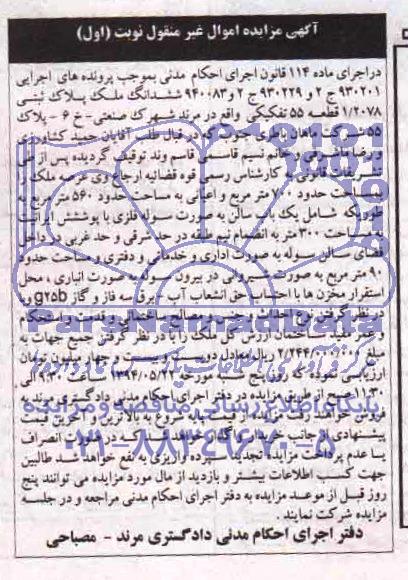 آگهی مزایده اموال غیر منقول نوبت (اول)
در اجرای ماده ۱۱۴ قانون اجرای احکام مدنی بموجب پرونده های اجرایی
۹۳۰۲۰۱ ج ۲ و ۹۳۰۲۲۹ ج ۲ و ۹۴۰۰۸۳ ششدانگ ملک پلاک ثبتی
۱/۲۰۷۸ قطعه ۵۵ تفکیکی واقع در مرند شهرک صنعتی - خ ۶ - پلاک
۵۵ شرکت ماهان که در قبال طلب آقایان حمید کشاورزی
و رضا و خانم نسیم قاسمی قاسم وند توقیف گردیده پس از طی
تشریفات قانونی به کارشناس رسمی قوه قضائیه ارجاع وی عرصه ملک را
به مساحت حدود متر مربع و اعیانی به مساحت حدود ۵۶۰ متر مربع به
طوریکه شامل یک باب سالن به صورت سوله فلزی با پوشش ایرانیت
به مساحت ۳۰۰ متر به انضمام نیم طبقه در حد شرقی و حد غربی در داخل
فضای سالن سوله به صورت اداری و خدماتی و دفتری و مساحت حدود
۹۰ متر مربع به صورت در بیرون سوله به صورت انباری ، محل
استقرار مخزن ها با احتساب حق انشعاب آب - برق سه فاز و گاز g25b و با
در نظر گرفتن نوع احداث و جنس و مصالح ساختمانی و قدمت و استحکام
و عمر مفید ساختمان ارزش کل ملک را با در نظر گرفتن جمیع جهات به
مبلغ ۲/۲۴۴/۰۰۰/۰۰۰ ریال معادل دویست و بیست و چهار میلیون تومان
ارزیابی نموده که روز پنج شنبه مورخه ۱۳۹۴/۰۵/۲۲ ساعت ۹:۳۰ الی
۱۱:۳۰ صبح از طریق مزایده در دفتر اجرای احکام مدنی دادگستری مرند به
فروش خواهد رسید مزایده از قیمت پایه شروع و به بالاترین و آخرین قیمت
پیشنهادی از جانب خریدار واگذار خواهد شد که در صورت انصراف
یا عدم پرداخت مزایده تجدید و سپرده واریزی به نفع خواهد شد طالبین
جهت کسب اطلاعات بیشتر و بازدید از مال مورد مزایده می توانند پنج
روز قبل از موعد مزایده به دفتر اجرای احکام مدنی مراجعه و در جلسه
مزایده شرکت نمایند.
دفتر اجرای احکام مدنی دادگستری مرند - مصباحی
ParsNamadData
پایگاه اطلاع رسانی مناقصه و مزایده
۰۲۱-۸۸۳۴۹۶۷۰-۵